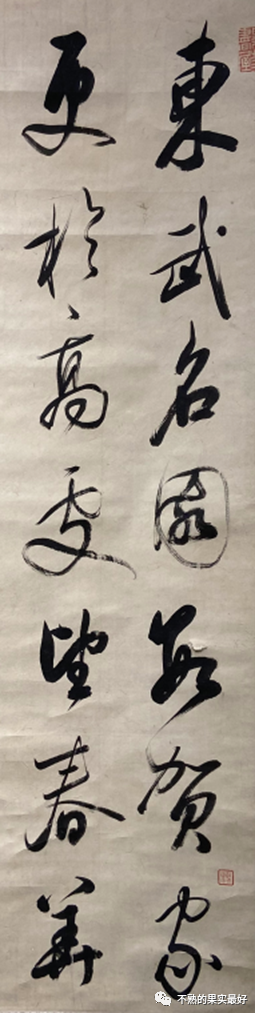 東武名園數賀家
更於高處望春華
不熟的果实最好